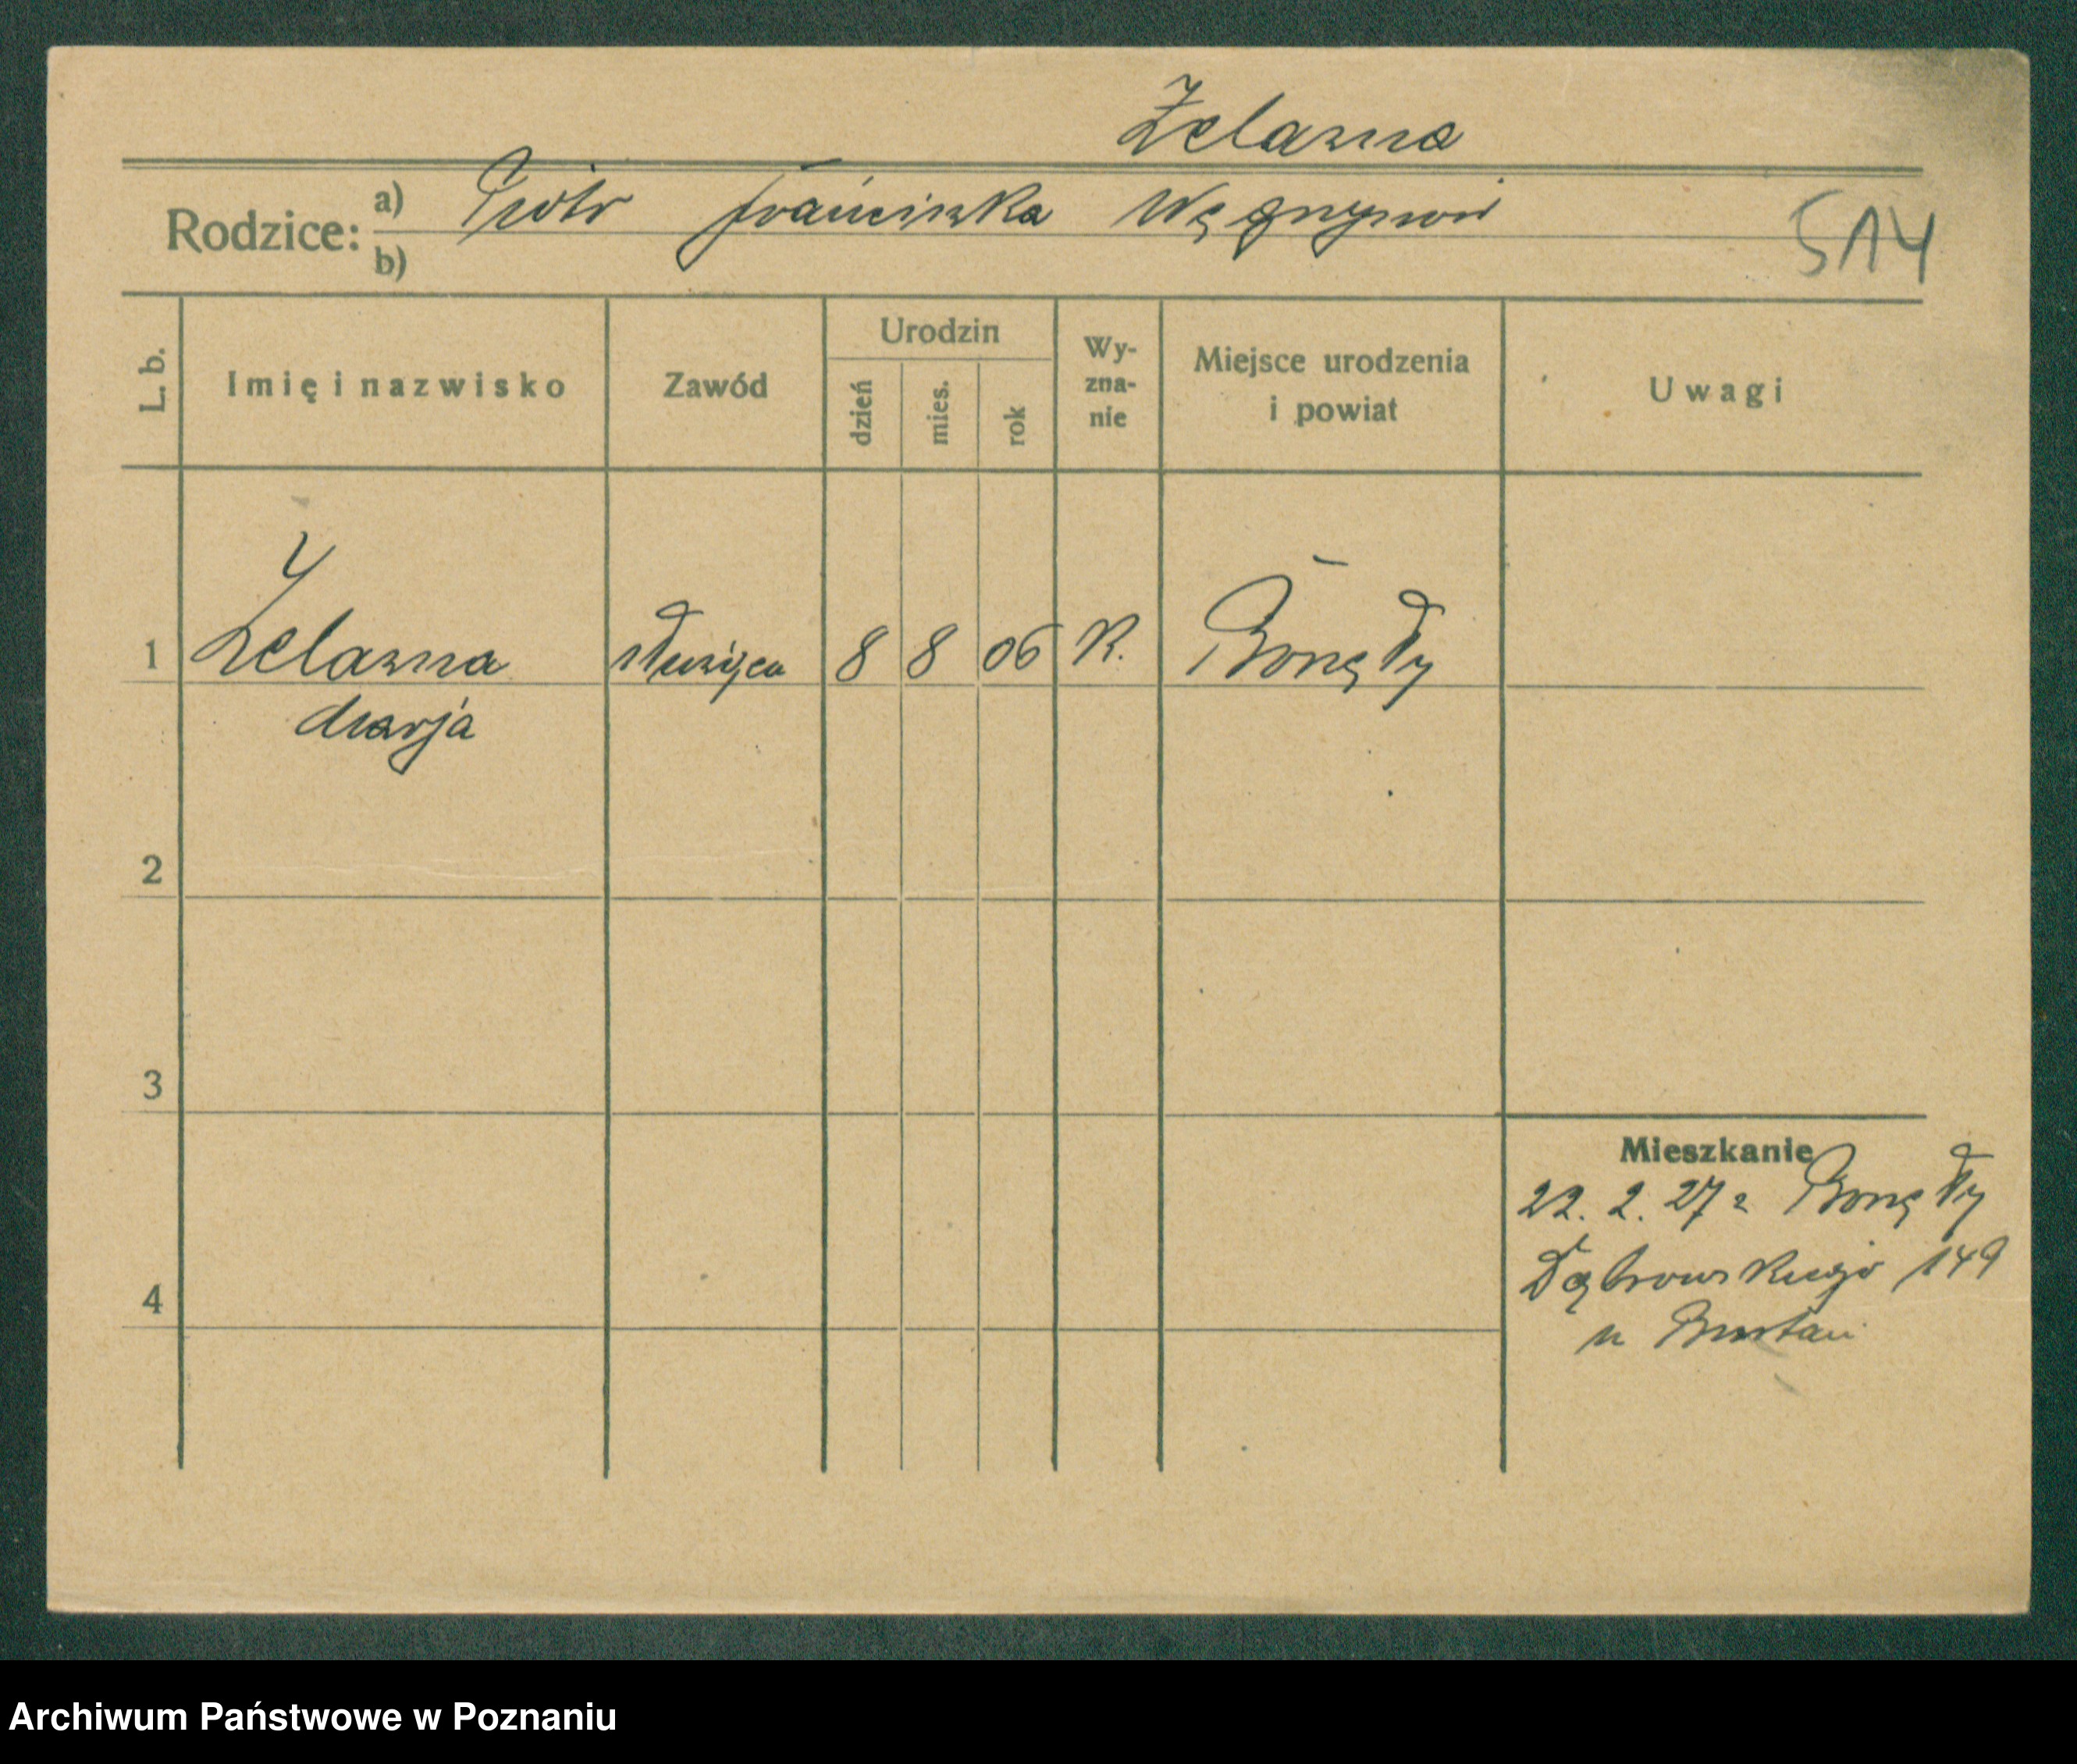 Żelazna
Rodzice: a) Piotr Franciszka
b)
514
L. b. Imię i nazwisko Zawód Urodzin dzień mies. rok Wy-zna-nie Miejsce urodzenia i powiat Uwagi
1 Żelazna służąca 8 8 06 K.
Marja
2
3
4
Mieszkanie
22. 2. 27 z
Dąbrowskiego 149
u
Archiwum Państwowe w Poznaniu